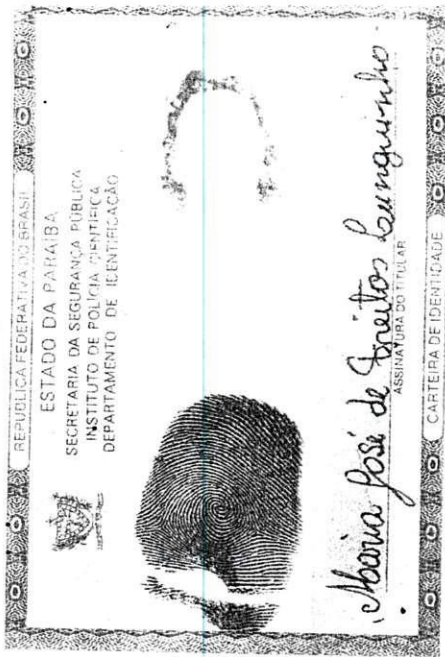 REPÚBLICA FEDERATIVA DO BRASIL
ESTADO DA PARAÍBA
SECRETARIA DA SEGURANÇA PÚBLICA
INSTITUTO DE POLÍCIA CIENTÍFICA
DEPARTAMENTO DE IDENTIFICAÇÃO
Maria José de Freitas
ASSINATURA DO TITULAR
CARTEIRA DE IDENTIDADE